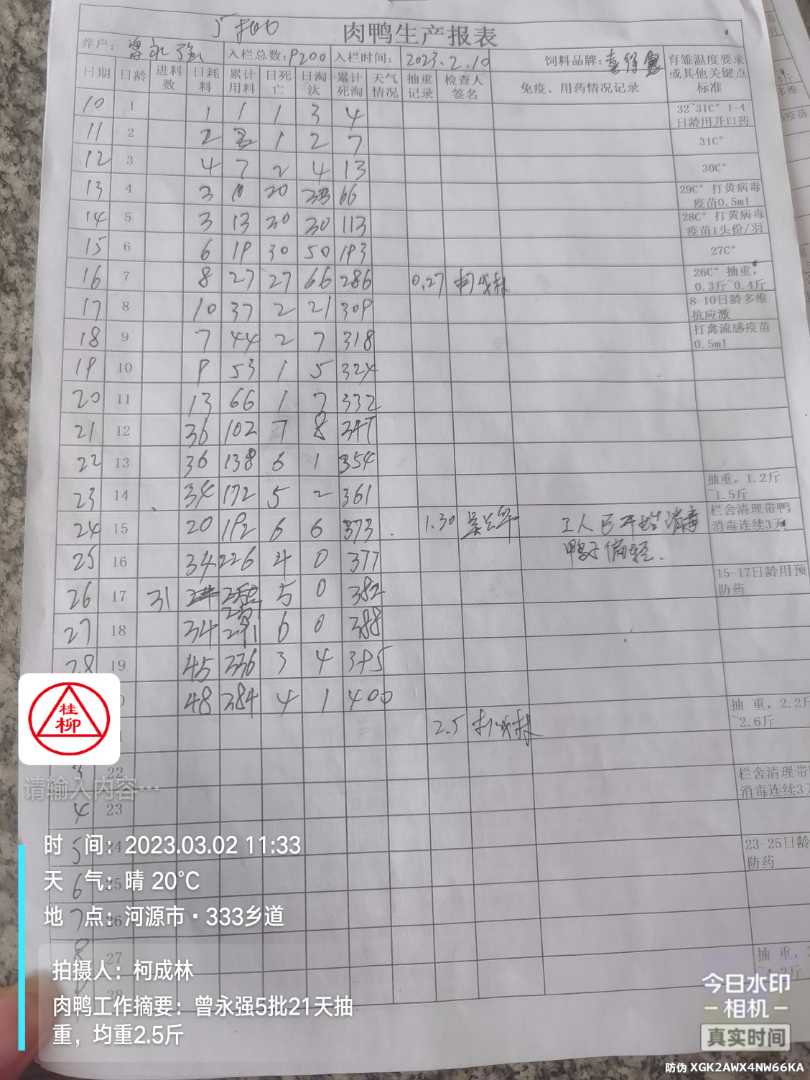 肉鸭生产报表
养户: 曾永强 入栏总数: 9200 入栏时间: 2023.2.10 饲料品牌: 育雏温度要求或其他关键点标准
日期 日龄 进料数 日耗料 累计用料 日死亡 日淘汰 累计死淘 天气情况 抽重记录 检查人签名 免疫、用药情况记录
10 1 1 1 1 3 4 32~31C° 1-4日龄用开口药
11 2 2 3 1 2 7 31C°
12 3 4 7 2 4 13 30C°
13 4 3 10 20 33 66 29C° 打黄病毒疫苗0.5ml
14 5 3 13 30 30 113 28C° 打黄病毒疫苗1头份/羽
15 6 6 19 30 50 193 27C°
16 7 8 27 27 66 286 0.27 柯成林 26C° 抽重,0.3斤~0.4斤
17 8 10 37 2 21 309 8-10日龄多维抗应激
18 9 7 44 2 7 318 打禽流感疫苗0.5ml
19 10 9 53 1 5 324
20 11 13 66 1 7 332
21 12 36 102 7 8 347
22 13 36 138 6 1 354
23 14 34 172 5 2 361 抽重,1.2斤~1.5斤
24 15 20 192 6 6 373 1.30 工人已开始消毒 栏舍清理带鸭消毒连续3万
25 16 34 226 4 0 377 鸭子偏轻.
26 17 31 5 0 382 15-17日龄用预防药
27 18 34 291 6 0 388
28 19 45 336 3 4 395
48 384 4 1 400 抽重,2.2斤~2.6斤
2.5 柯成林
3 22 栏舍清理带鸭消毒连续3
4 23
5 24 23-25日龄防药
6 25
7 26
8 27 抽重,
28
桂柳
请输入内容…
时 间: 2023.03.02 11:33
天 气: 晴 20℃
地 点: 河源市·333乡道
拍摄人: 柯成林
肉鸭工作摘要: 曾永强5批21天抽重,均重2.5斤
今日水印
-相机-
真实时间
防伪 XGK2AWX4NW66KA